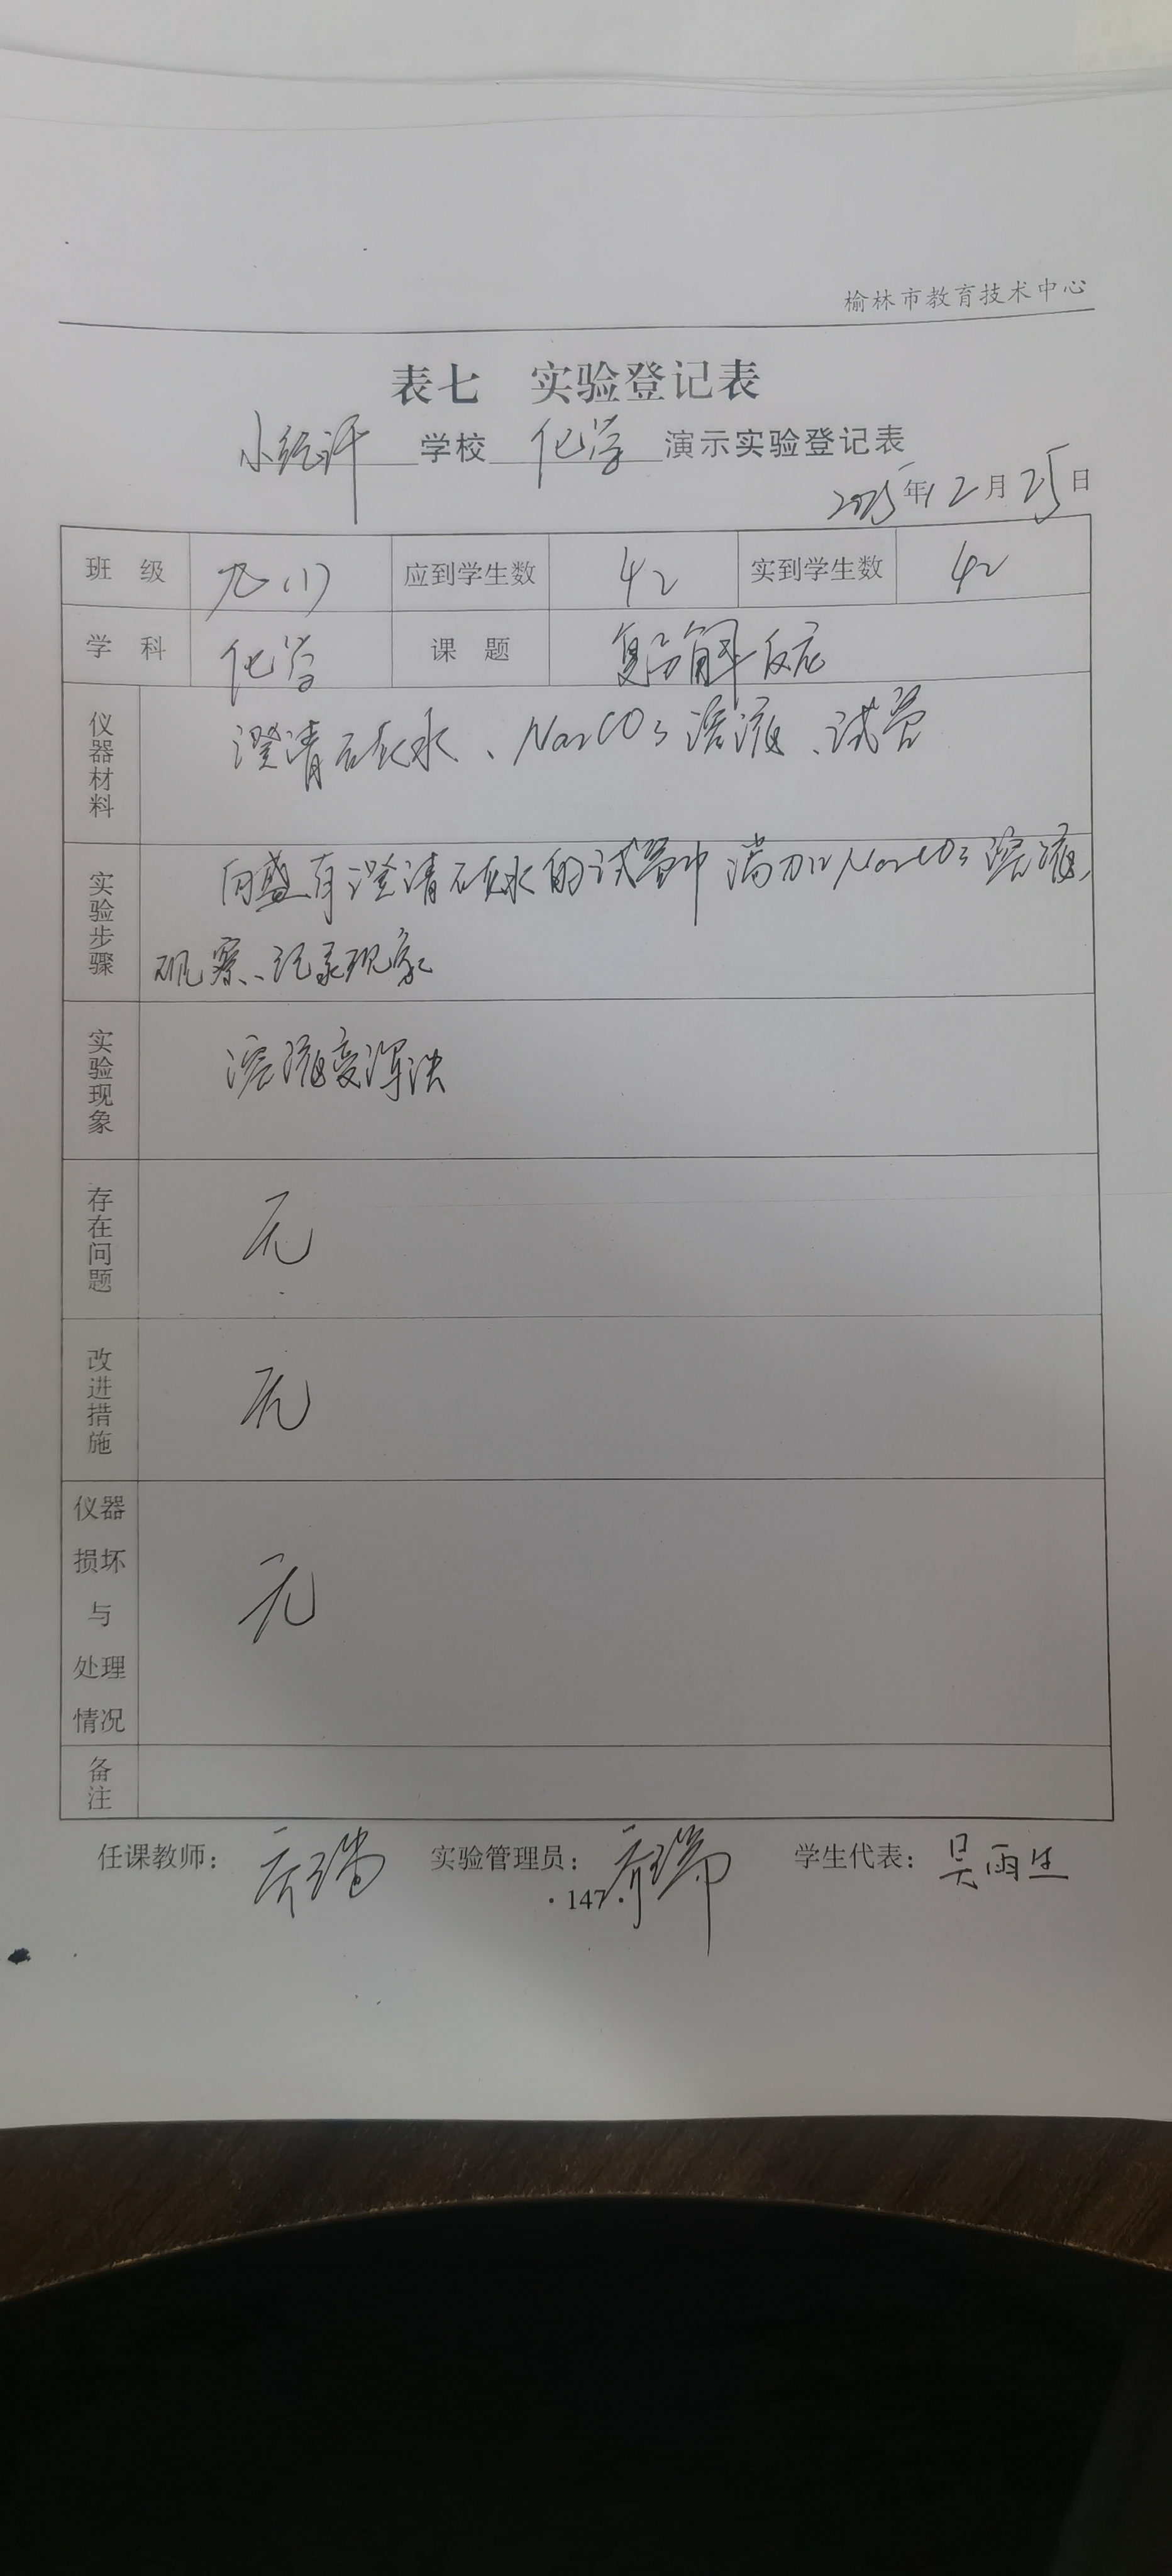 榆林市教育技术中心
表七 实验登记表
小纪汗 学校 化学 演示实验登记表
2025年12月25日
班 级 九(1) 应到学生数 42 实到学生数 42
学 科 化学 课 题 复分解反应
仪器材料 澄清石灰水、Na2CO3溶液、试管
实验步骤 向盛有澄清石灰水的试管中滴加Na2CO3溶液,
观察、记录现象
实验现象 溶液变浑浊
存在问题 无
改进措施 无
仪器损坏与处理情况 无
备注
任课教师: 乔瑞 实验管理员: 乔瑞 学生代表: 吴雨生
·147·